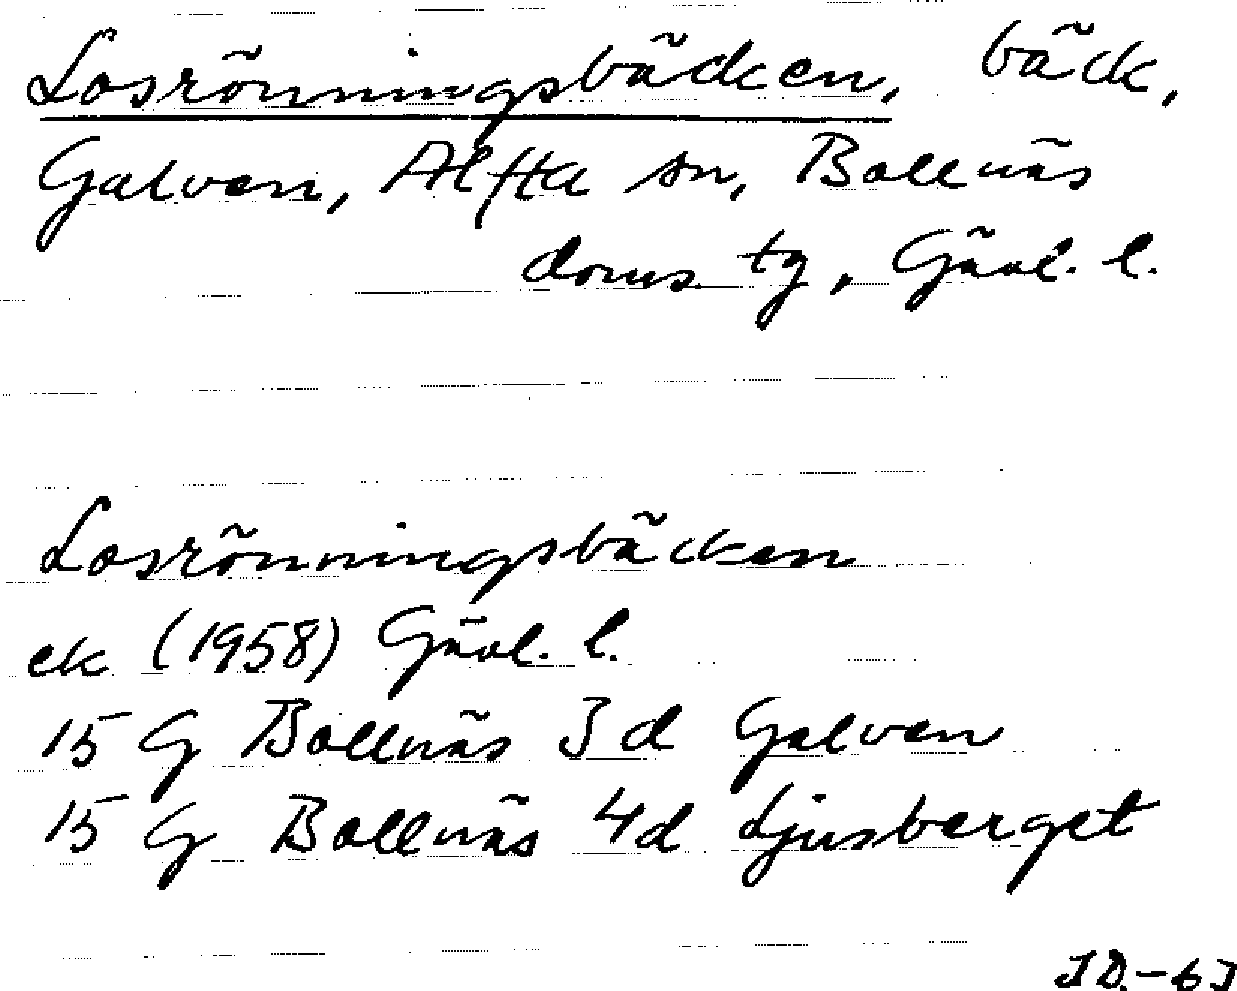 Losrönningsbäcken, bäck,
Galven, Alfta sn, Bollnäs
doms tg, Gävl. l.
Losrönningsbäcken
ek (1958) Gävl. l.
15 G Bollnäs 3d Galven
15 G Bollnäs 4d Ljusberget